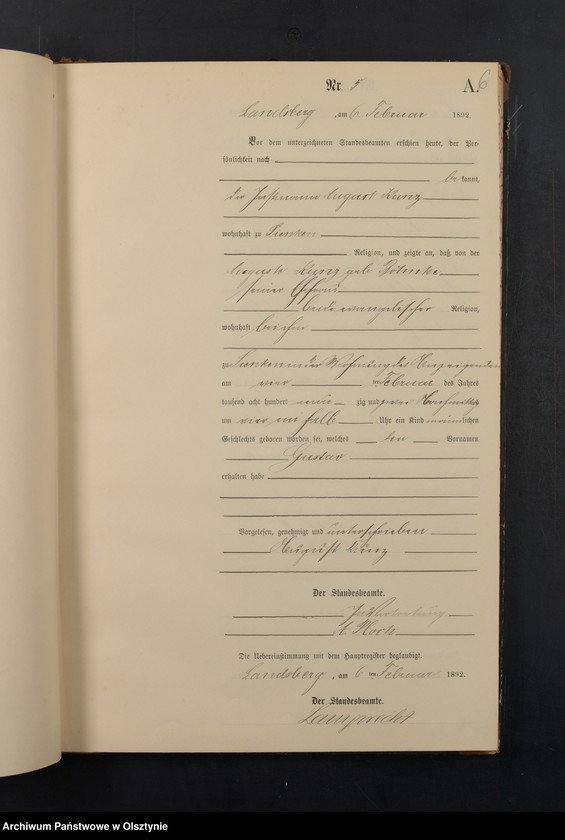 Nr. 8
A. 6
Landsberg, am 6 Februar 1892.
Vor dem unterzeichneten Standesbeamten erschien heute, der Per-
sönlichkeit nach
be kannt,
der August Kunz
wohnhaft zu
Religion, und zeigte an, daß von der
Auguste Kunz geb.
seiner Ehefrau
beide evangelischer Religion,
wohnhaft bei ihm
zu in der Wohnung des
am vier ten Februar des Jahres
tausend acht hundert neun zig und zwei Nachmittags
um vier ein halb Uhr ein Kind männlichen
Geschlechts geboren worden sei, welches den Vornamen
Gustav
erhalten habe
Vorgelesen, genehmigt und unterschrieben
August Kunz
Der Standesbeamte.
In Vertretung
Die Uebereinstimmung mit dem Hauptregister beglaubigt.
Landsberg, am 6 ten Februar 1892.
Der Standesbeamte.
Lamprecht
Archiwum Państwowe w Olsztynie